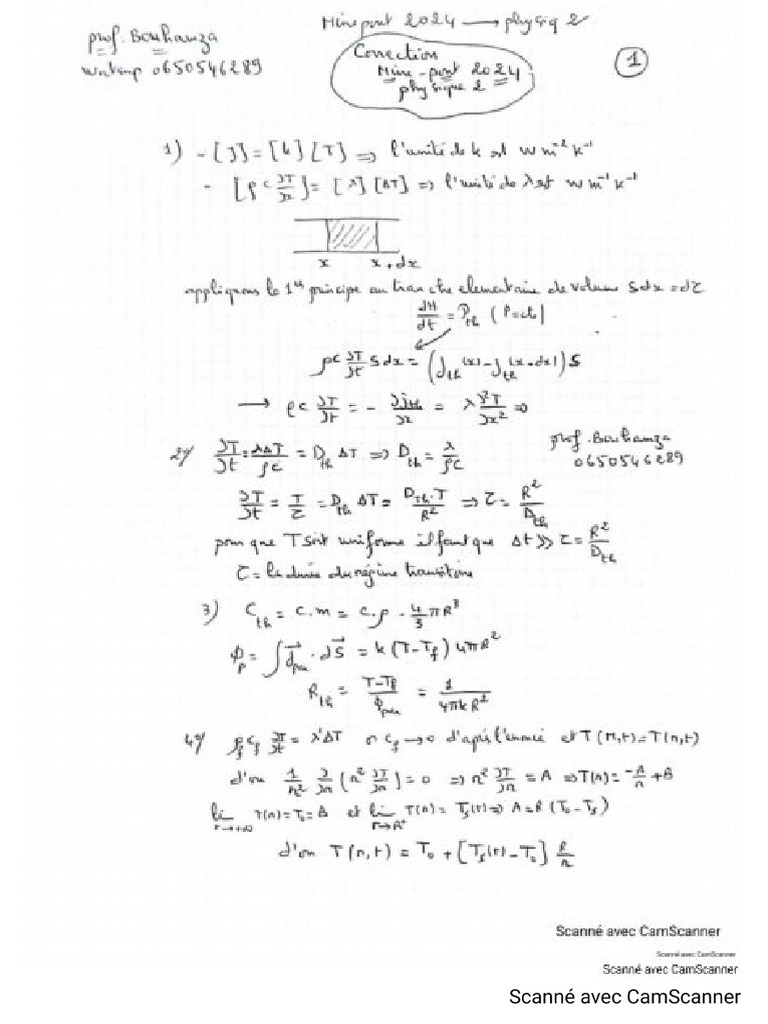 Mine pont 2024 → physiq 2
prof. Bouhamza
watsup 0650546289
Correction
Mine-pont 2024
physique 2
1
1) - [J] = [k][T] ⇒ l'unité de k est W m⁻² K⁻¹
- [ρ c ∂T/∂t] = [λ][ΔT] ⇒ l'unité de λ est W m⁻¹ K⁻¹
x x+dx
appliquons le 1er principe au tranche elementaire de volume Sdx = dτ
dH/dt = P_th (P=cte)
ρc ∂T/∂t S dx = (j_th(x) - j_th(x+dx)) S
→ ρc ∂T/∂t = - ∂j_th/∂x = λ ∂²T/∂x² ⇒
prof. Bouhamza
0650546289
2°/ ∂T/∂t = λΔT/ρc = D_th ΔT ⇒ D_th = λ/ρc
∂T/∂t = T/τ = D_th ΔT = D_th·T/R² ⇒ τ = R²/D_th
pour que T soit uniforme il faut que Δt ≫ τ = R²/D_th
τ = la durée du régime transitoire
3) C_th = c.m = c.ρ . 4/3 πR³
ϕ_p = ∫ φ⃗_pa . dS⃗ = k(T-T_f) 4πR²
R_th = T-T_f/ϕ_pa = 1/4πkR²
4°/ ρ_f c_f ∂T/∂t = λ'ΔT or c_f → 0 d'après l'énoncé et T(M,t) = T(r,t)
d'ou 1/r² ∂/∂r (r² ∂T/∂r) = 0 ⇒ r² ∂T/∂r = A ⇒ T(r) = -A/r + B
lim r→+∞ T(r) = T₀ = B et lim r→R⁺ T(r) = T_f(t) ⇒ A = R(T₀ - T_f)
d'ou T(r,t) = T₀ + [T_f(t) - T₀] R/r
Scanné avec CamScanner
Scanné avec CamScanner
Scanné avec CamScanner
Scanné avec CamScanner